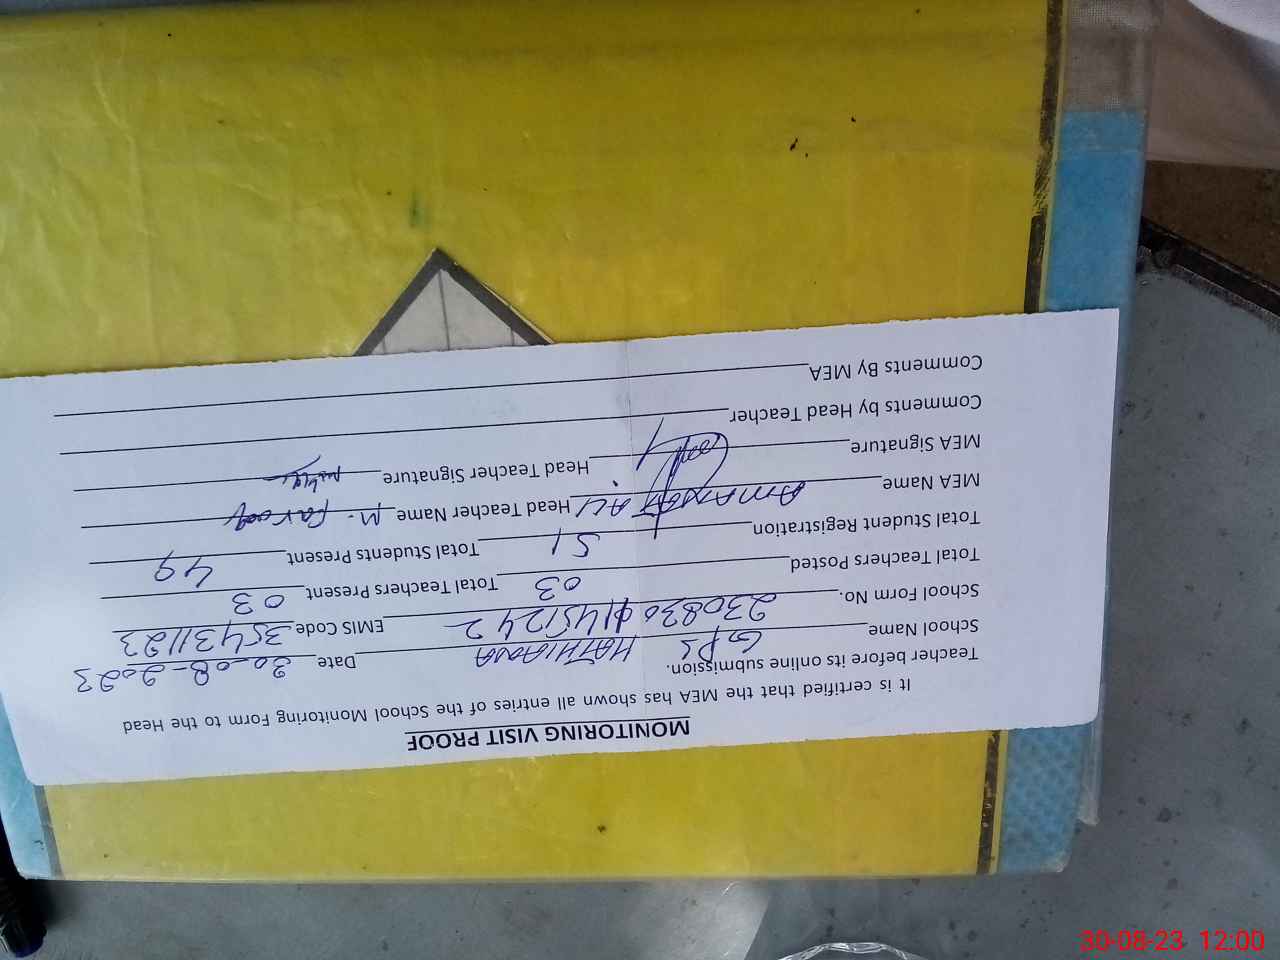 MONITORING VISIT PROOF
It is certified that the MEA has shown all entries of the School Monitoring Form to the Head
Teacher before its online submission.
School Name GPS HATHIANA Date 30-08-2023
School Form No. 230830 0145124 2 EMIS Code 35431123
Total Teachers Posted 03 Total Teachers Present 03
Total Student Registration 51 Total Students Present 49
MEA Name AMANAT ALI Head Teacher Name M. Farooq
MEA Signature Head Teacher Signature
Comments by Head Teacher
Comments By MEA
30-08-23 12:00